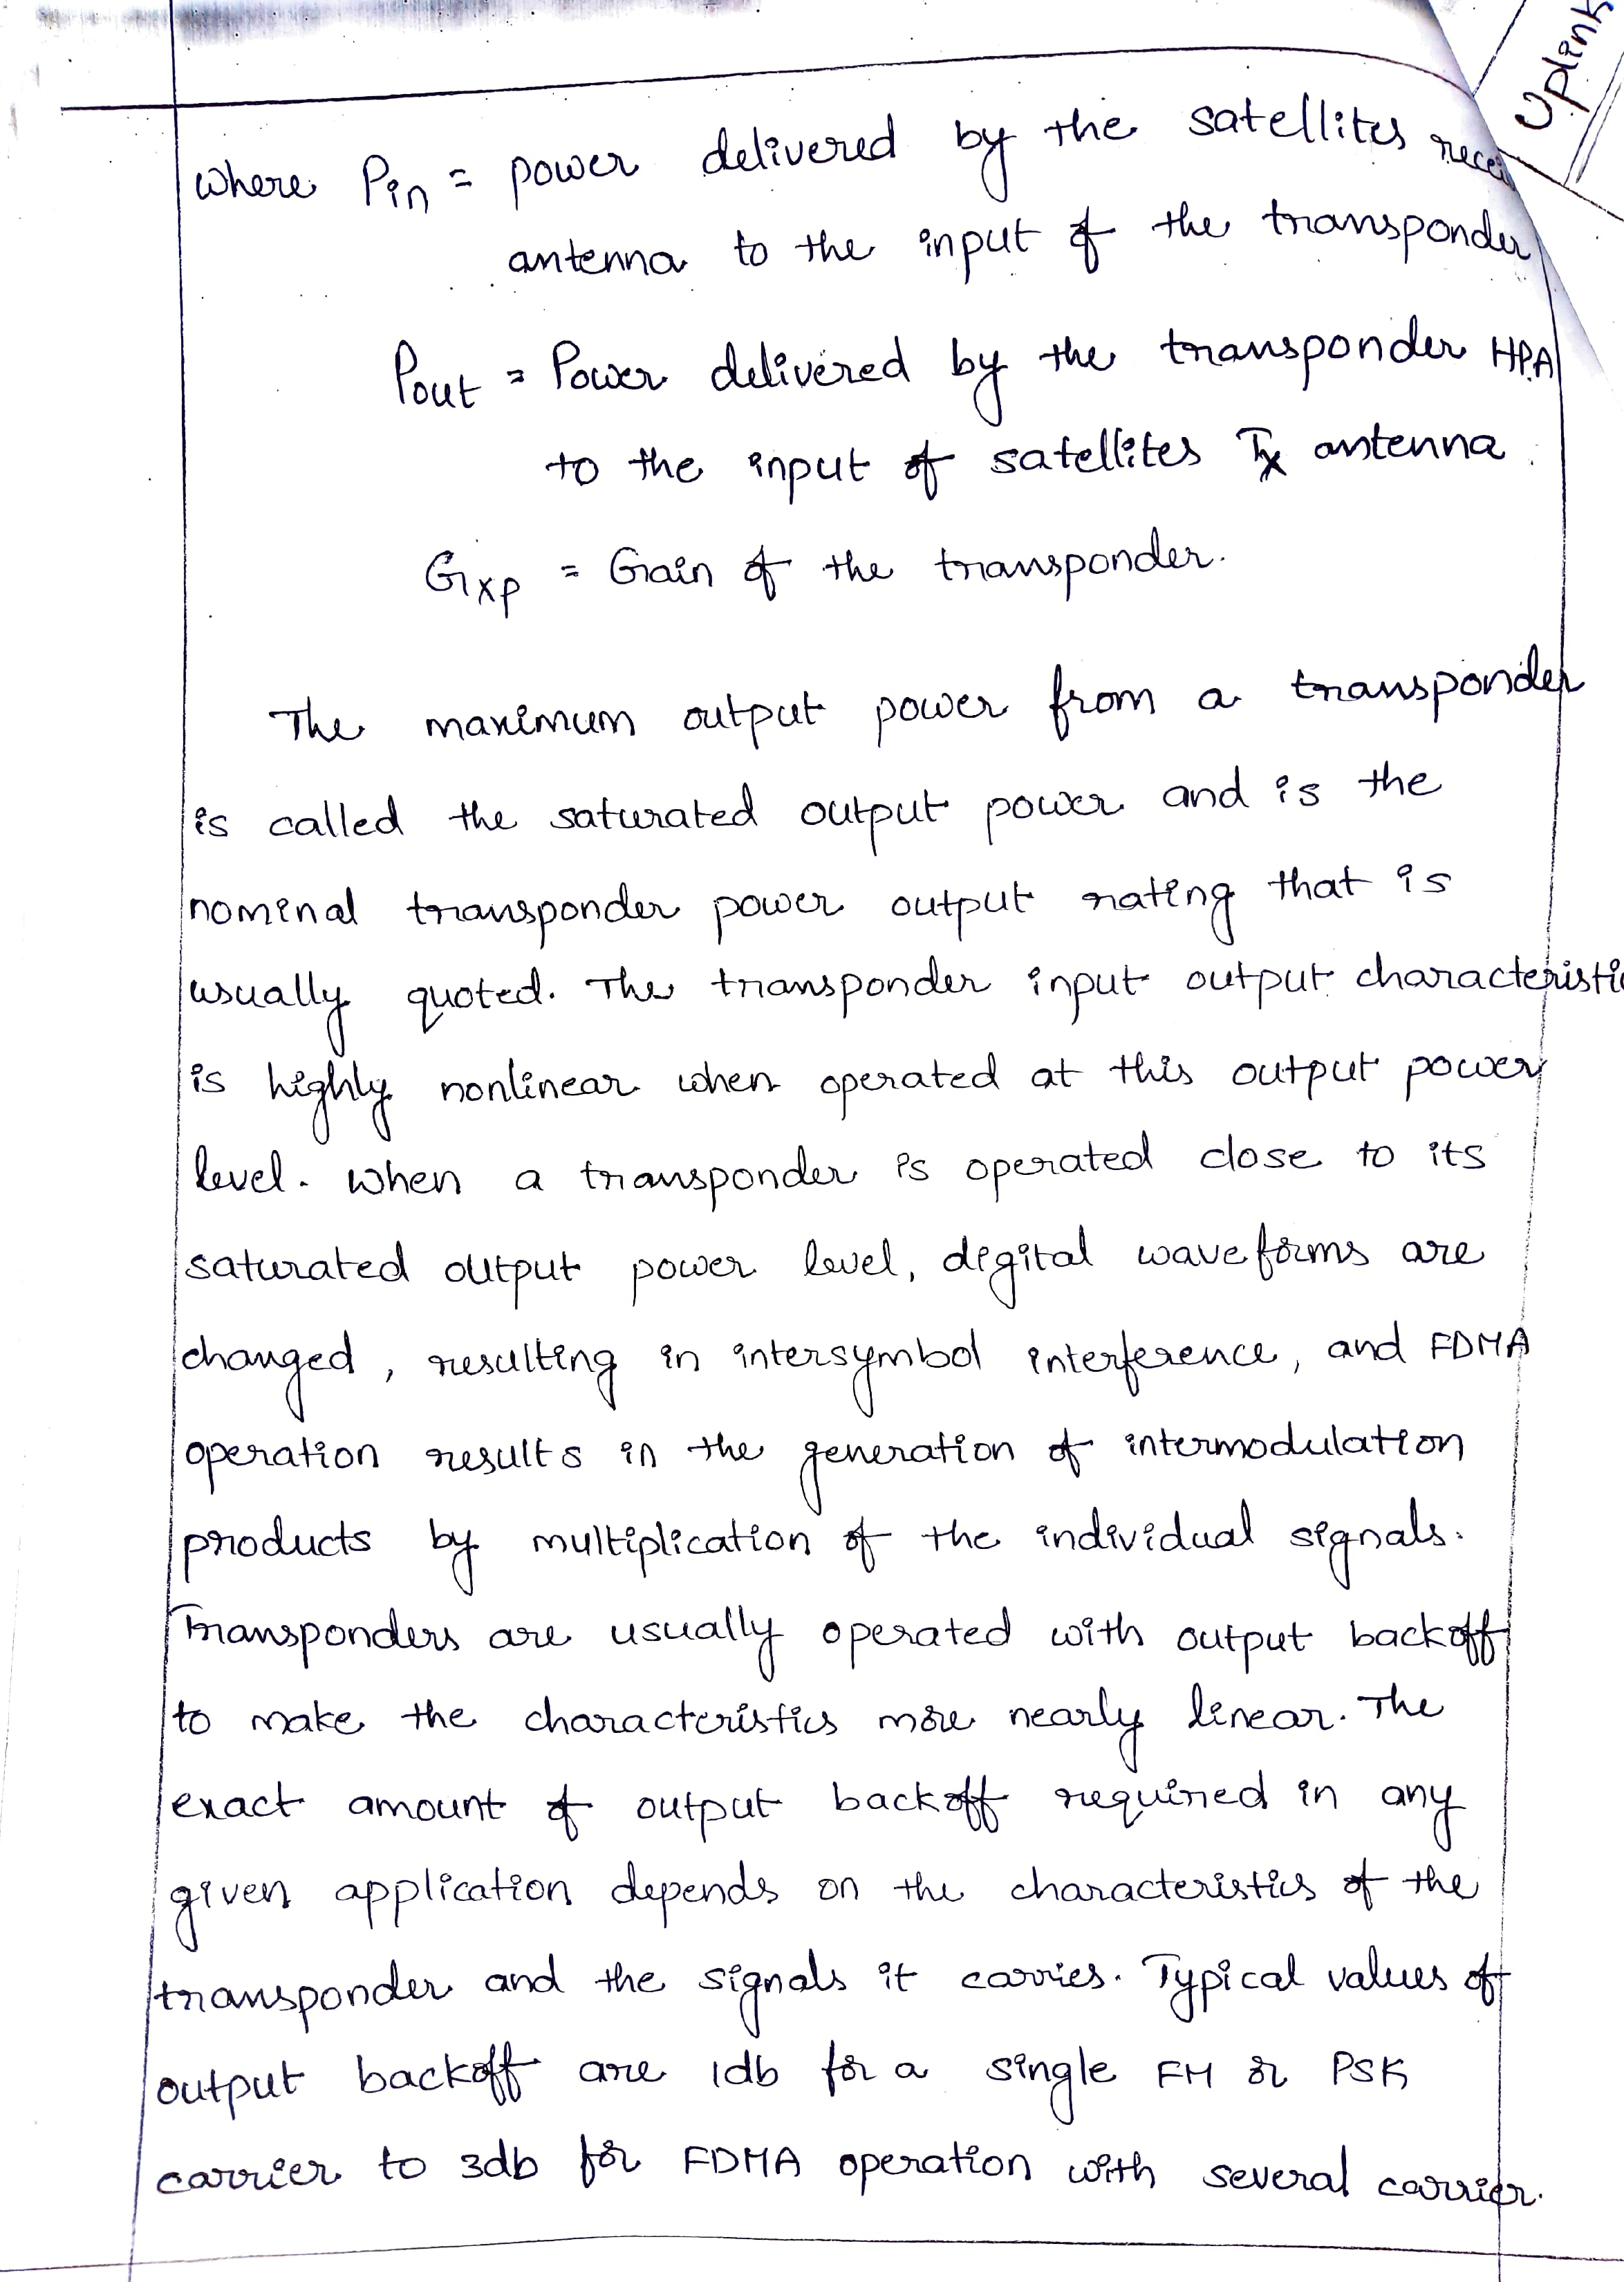 Uplink
where Pin = power delivered by the satellites recei
antenna to the input of the transponder
Pout = Power delivered by the transponder HPA
to the input of satellites Tx antenna.
Gxp = Gain of the transponder.
The maximum output power from a transponder
is called the saturated output power and is the
nominal transponder power output rating that is
usually quoted. The transponder input output characteristic
is highly nonlinear when operated at this output power
level. when a transponder is operated close to its
saturated output power level, digital waveforms are
changed, resulting in intersymbol interference, and FDMA
operation results in the generation of intermodulation
products by multiplication of the individual signals.
Transponders are usually operated with output backoff
to make the characteristics more nearly linear. The
exact amount of output backoff required in any
given application depends on the characteristics of the
transponder and the signals it carries. Typical values of
output backoff are 1db for a single FM or PSK
carrier to 3db for FDMA operation with several carrier.